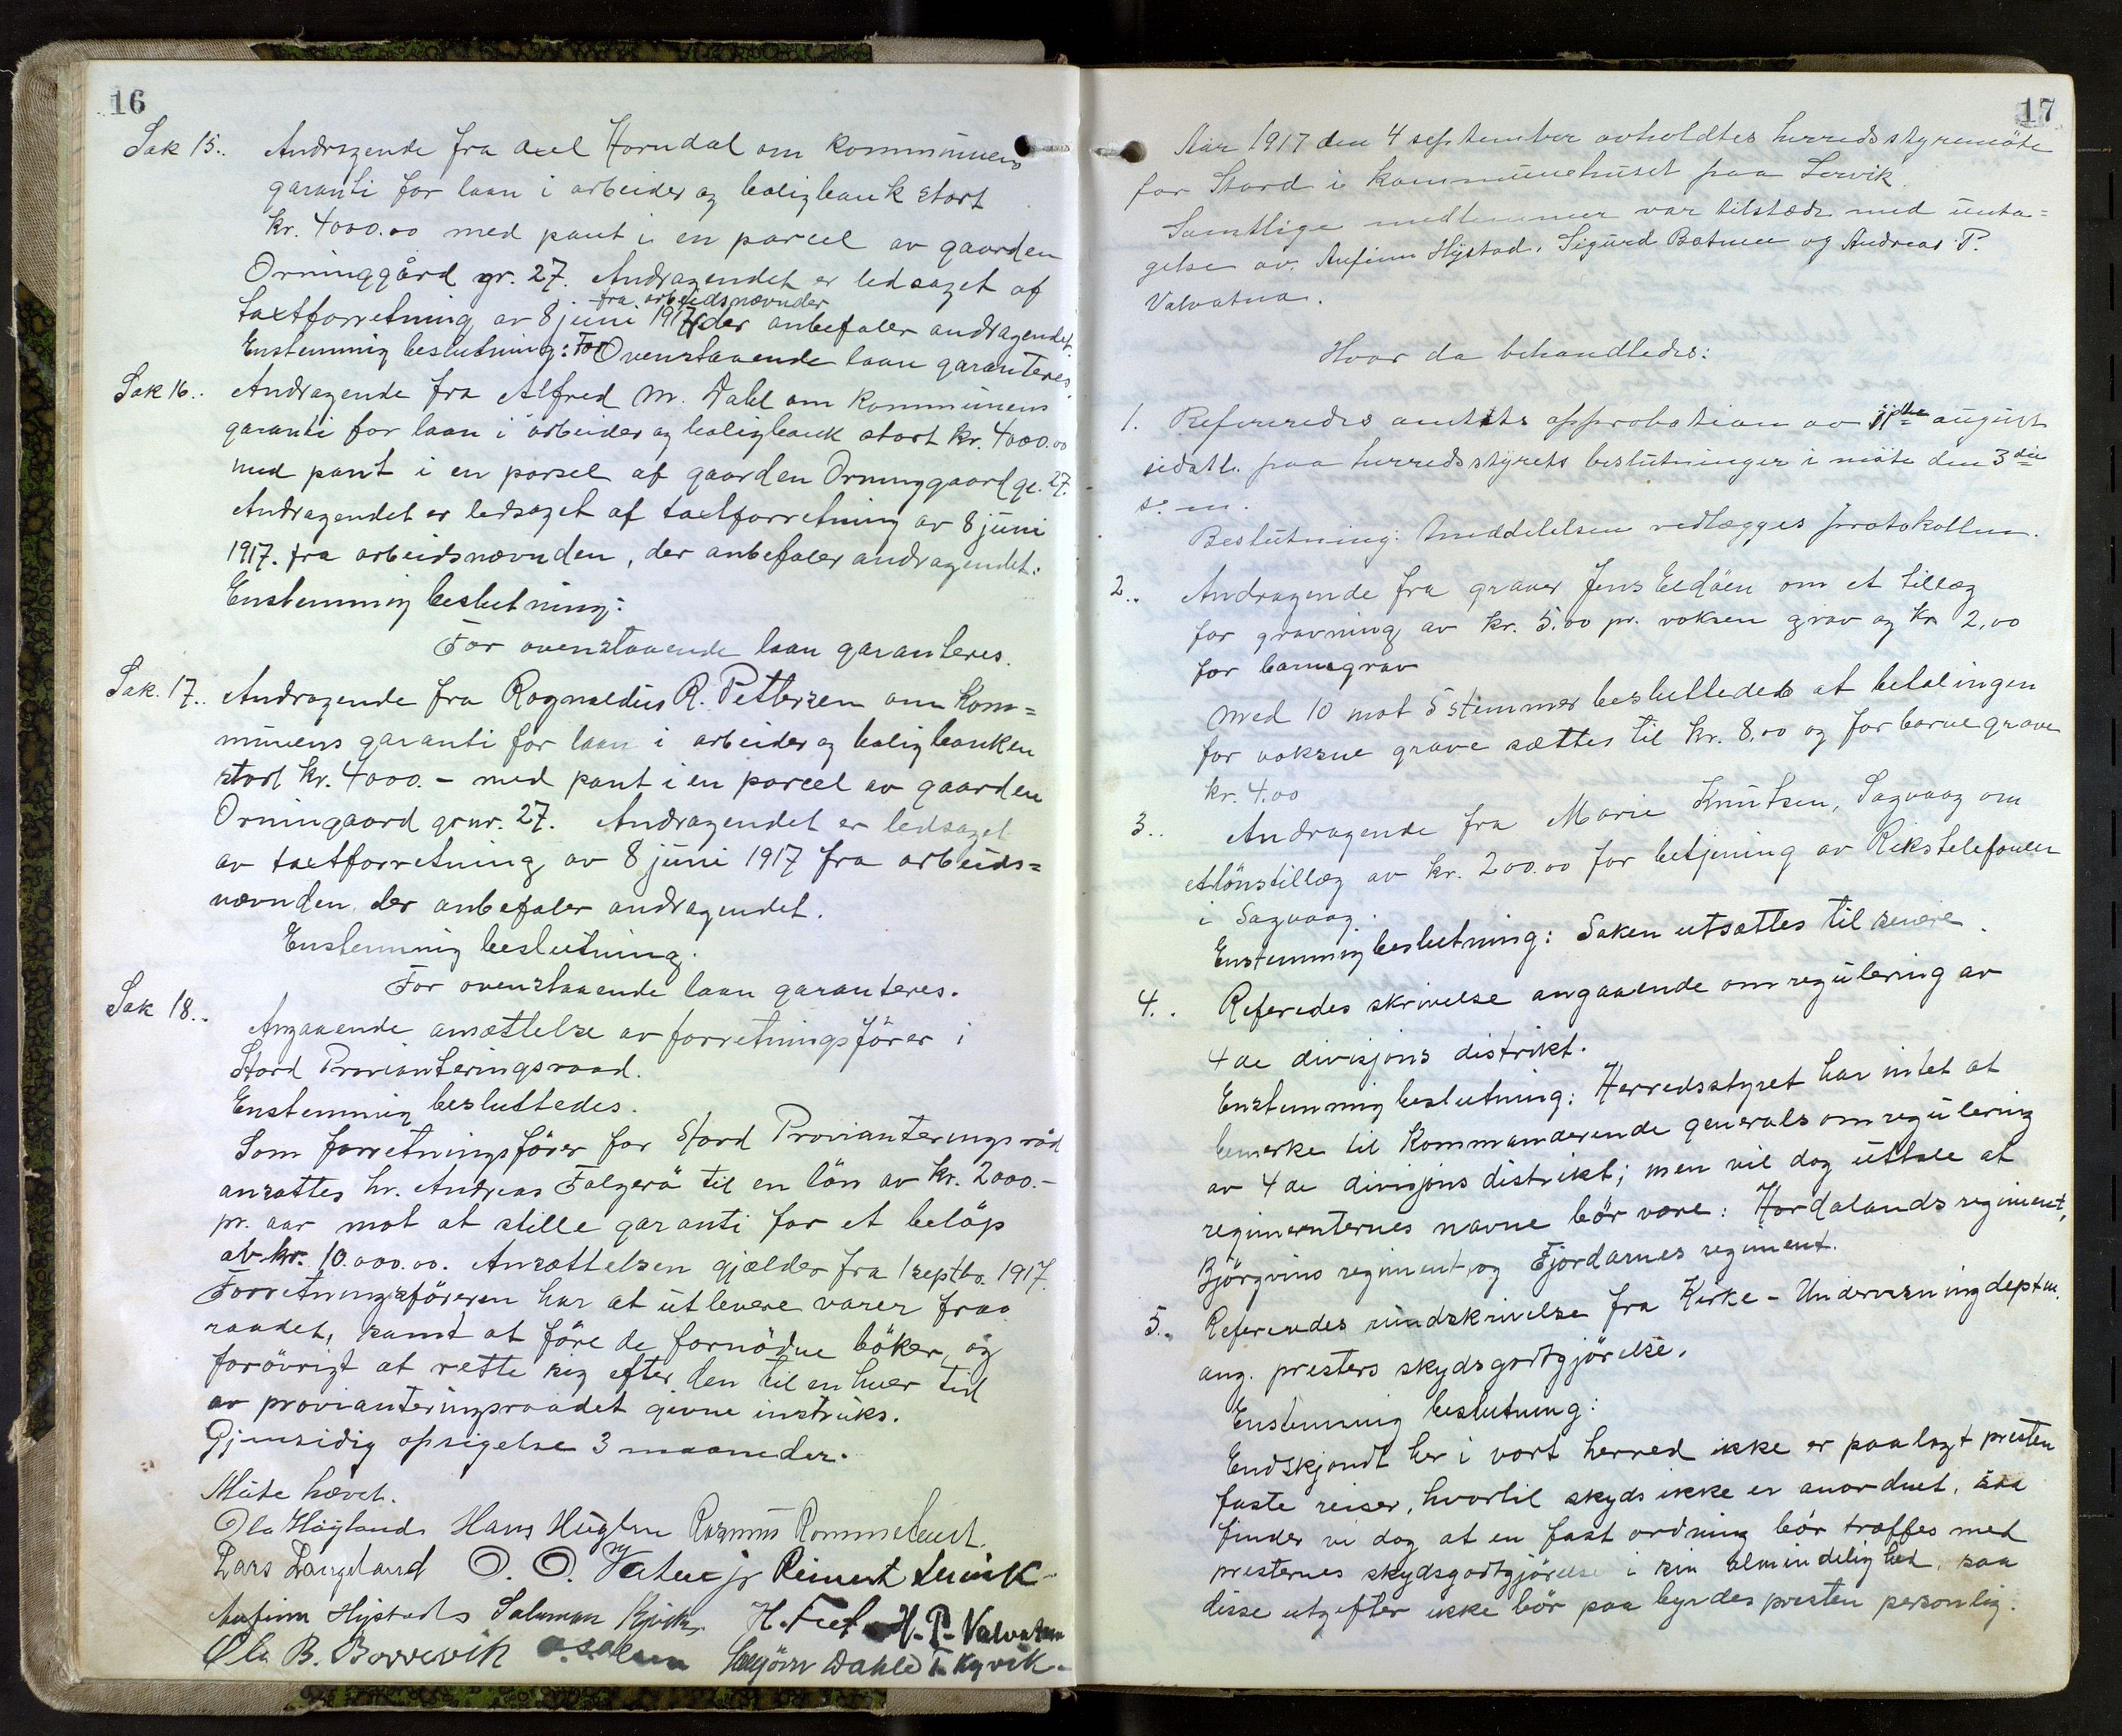 16
Sak 15.. Andragende fra Axel Horndal om kommunens
garanti for laan i arbeider og boligbank stort
kr. 4000.00 med pant i en parcel av gaarden
Orninggård gr. 27. Andragendet er ledsaget af
fra arbeidsnævnder
taxtforretning av 8 juni 1917 der anbefaler andragendet.
Enstemmig beslutning: For Ovenstaaende laan garanteres.
Sak 16.. Andragende fra Alfred M. Dahl om kommunens
garanti for laan i arbeider og boligbank stort kr. 4000.00
med pant i en parsel af gaarden Orninggaard gr. 27.
Andragendet er ledsaget af taxtforretning av 8 juni
1917. fra arbeidsnævnden, der anbefaler andragendet:
Enstemmig beslutning:
For ovenstaaende laan garanteres.
Sak. 17.. Andragende fra Rognaldus R. Pettersen om kom=
munens garanti for laan i arbeider og boligbanken
stort kr. 4000.- med pant i en parcel av gaarden
Orningaard grnr. 27. Andragendet er ledsaget
av taxtforretning av 8 juni 1917 fra arbeids=
nævnden der anbefaler andragendet.
Enstemmig beslutning.
For ovenstaaende laan garanteres.
Sak 18..
Angaaende ansættelse av forretningsfører i
Stord Provianteringsraad.
Enstemmig besluttedes.
Som forretningsfører for Stord Provianteringsråd
ansattes hr. Andreas Falgerö til en lön av kr. 2000.-
pr. aar mot at stille garanti for et belöp
av kr. 10.000.00. Ansættelsen gjælder fra 1 septbr. 1917.
Forretningsföreren har at utlevere varer fraa
raadet, samt at före de fornödne böker, og
forövrigt at rette sig efter den til en hver tid
av provianteringsraadet givne instruks.
Gjensidig opsigelse 3 maaneder.
Möte hævet.
Ola Höyland Hans Huglen Rasmus Rommetveit
Lars Langeland O. O. Vatne jr Reinert Leirvik
Anfinn Hystad Salomon Kyvik H. Feet H. P. Valvatna
Ola B. Borrevik O. S. Olsen Torbjörn Dahle T. Kyvik.
17
Aar 1917 den 4 september avholdtes herredsstyremöte
for Stord i kommunehuset paa Lervik.
Samtlige medlemmer var tilstæde med unta=
gelse av. Anfinn Hystad, Sigurd Botnen og Andreas P.
Valvatna.
Hvor da behandledes:
1. Refereredes amtets approbation av 11te august
sidstl. paa herredsstyrets beslutninger i möte den 3die
s. m.
Beslutning: Meddelelsen vedlægges protokollen.
2.. Andragende fra graver Jens Eldöen om et tillæg
for gravning av kr. 5.00 pr. voksen grav og kr 2,00
for barnegrav
Med 10 mot 5 stemmer besluttedes at betalingen
for voksne grave sættes til kr. 8,00 og for barnegrave
kr. 4.00
3.. Andragende fra Marie Knutsen, Sagvaag om
et lönstillæg av kr. 200.00 for betjening av Rikstelefonen
i Sagvaag.
Enstemmig beslutning: Saken utsættes til senere.
4.. Referedes skrivelse angaaende omregulering av
4de divisjons distrikt.
Enstemmig beslutning: Herredsstyret har intet at
bemerke til Kommanderende generals omregulering
av 4de divisjons distrikt; men vil dog uttale at
regimenternes navne bör være: Hordalands regiment,
Björgvins regiment og Fjordarnes regiment.
5.. Refereredes rundskrivelse fra Kirke- Undervisningdeptm.
ang. presters skydsgodtgjörelse.
Enstemmig beslutning:
Endskjöndt her i vort herred ikke er paalagt presten
faste reiser, hvortil skyds ikke er anordnet, saa
finder vi dog at en fast ordning bör træffes med
presternes skydsgodtgjörelse i sin almindelighet, saa
disse utgifter ikke bör paa byrdes presten personlig.